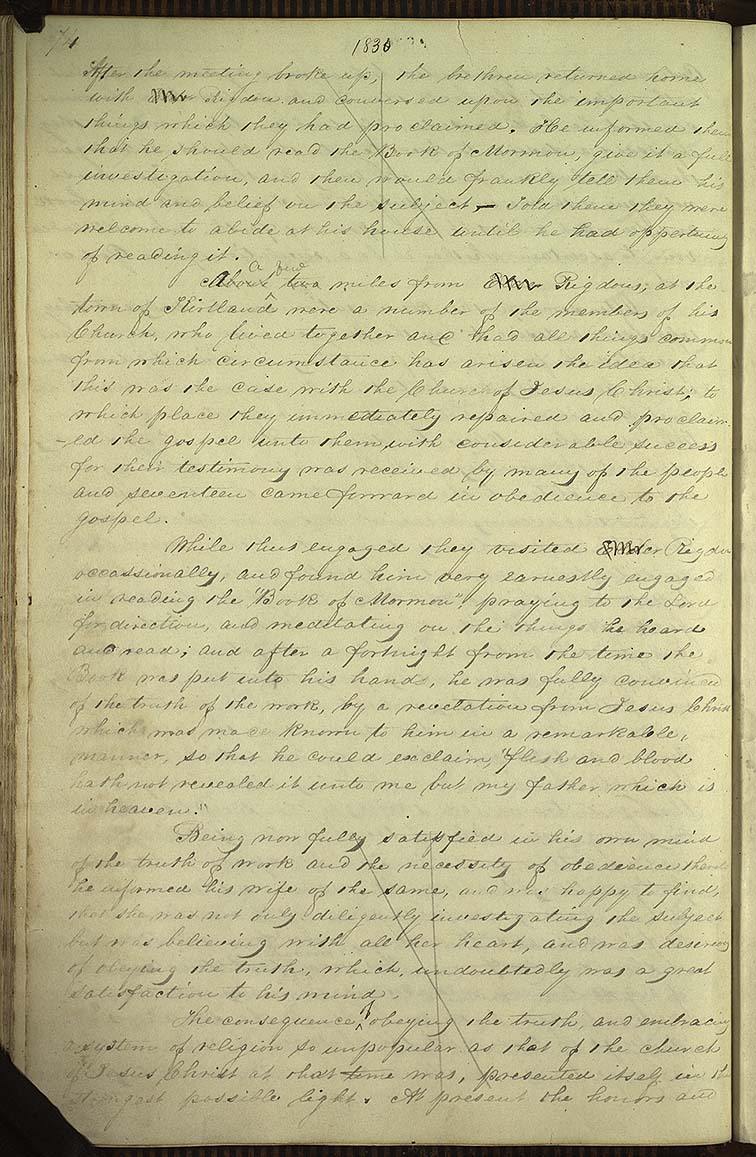 74
1830
After the meeting broke up, the brethren returned home
with Mr Rigdon and conversed upon the important
things which they had proclaimed. He informed them
that he should read the Book of Mormon, give it a full
investigation, and then would frankly tell them his
mind and belief on the subject,— Told them they were
welcome to abide at his house until he had opportunity
of reading it.
a
About two miles from Rigdons, at the
town of Kirtland were a number of the members of his
Church, who lived together and had all things common
from which circumstance has arisen the idea that
this was the case with the Church of Jesus Christ; to
which place they immediately repaired and proclaim
-ed the gospel unto them, with considerable success
for their testimony was received by many of the people
and seventeen came forward in obedience to the
gospel.
While thus engaged they visited Mr Rigdon
occassionally, and found him very earnestly engaged
in reading the "Book of Mormon", praying to the Lord
for direction, and meditating on the things he heard
and read; and after a fortnight from the time the
Book was put into his hands, he was fully convinced
of the truth of the work, by a revelation from Jesus Christ
which was made known to him in a remarkable,
manner, so that he could exclaim "flesh and blood
hath not revealed it unto me but my father which is
in heaven."
Being now fully satisfied in his own mind
of the truth of work and the necessity of obedience thereto
he informed his wife of the same, and was happy to find,
that she was not only diligently investigating the subject
but was believing with all her heart, and was desirous
of obeying the truth, which, undoubtedly was a great
satisfaction to his mind.
The consequence of obeying the truth, and embracing
a system of religion so unpopular as that of the church
of Jesus Christ at that time was, presented itself in the
strongest possible light. At present the honors and